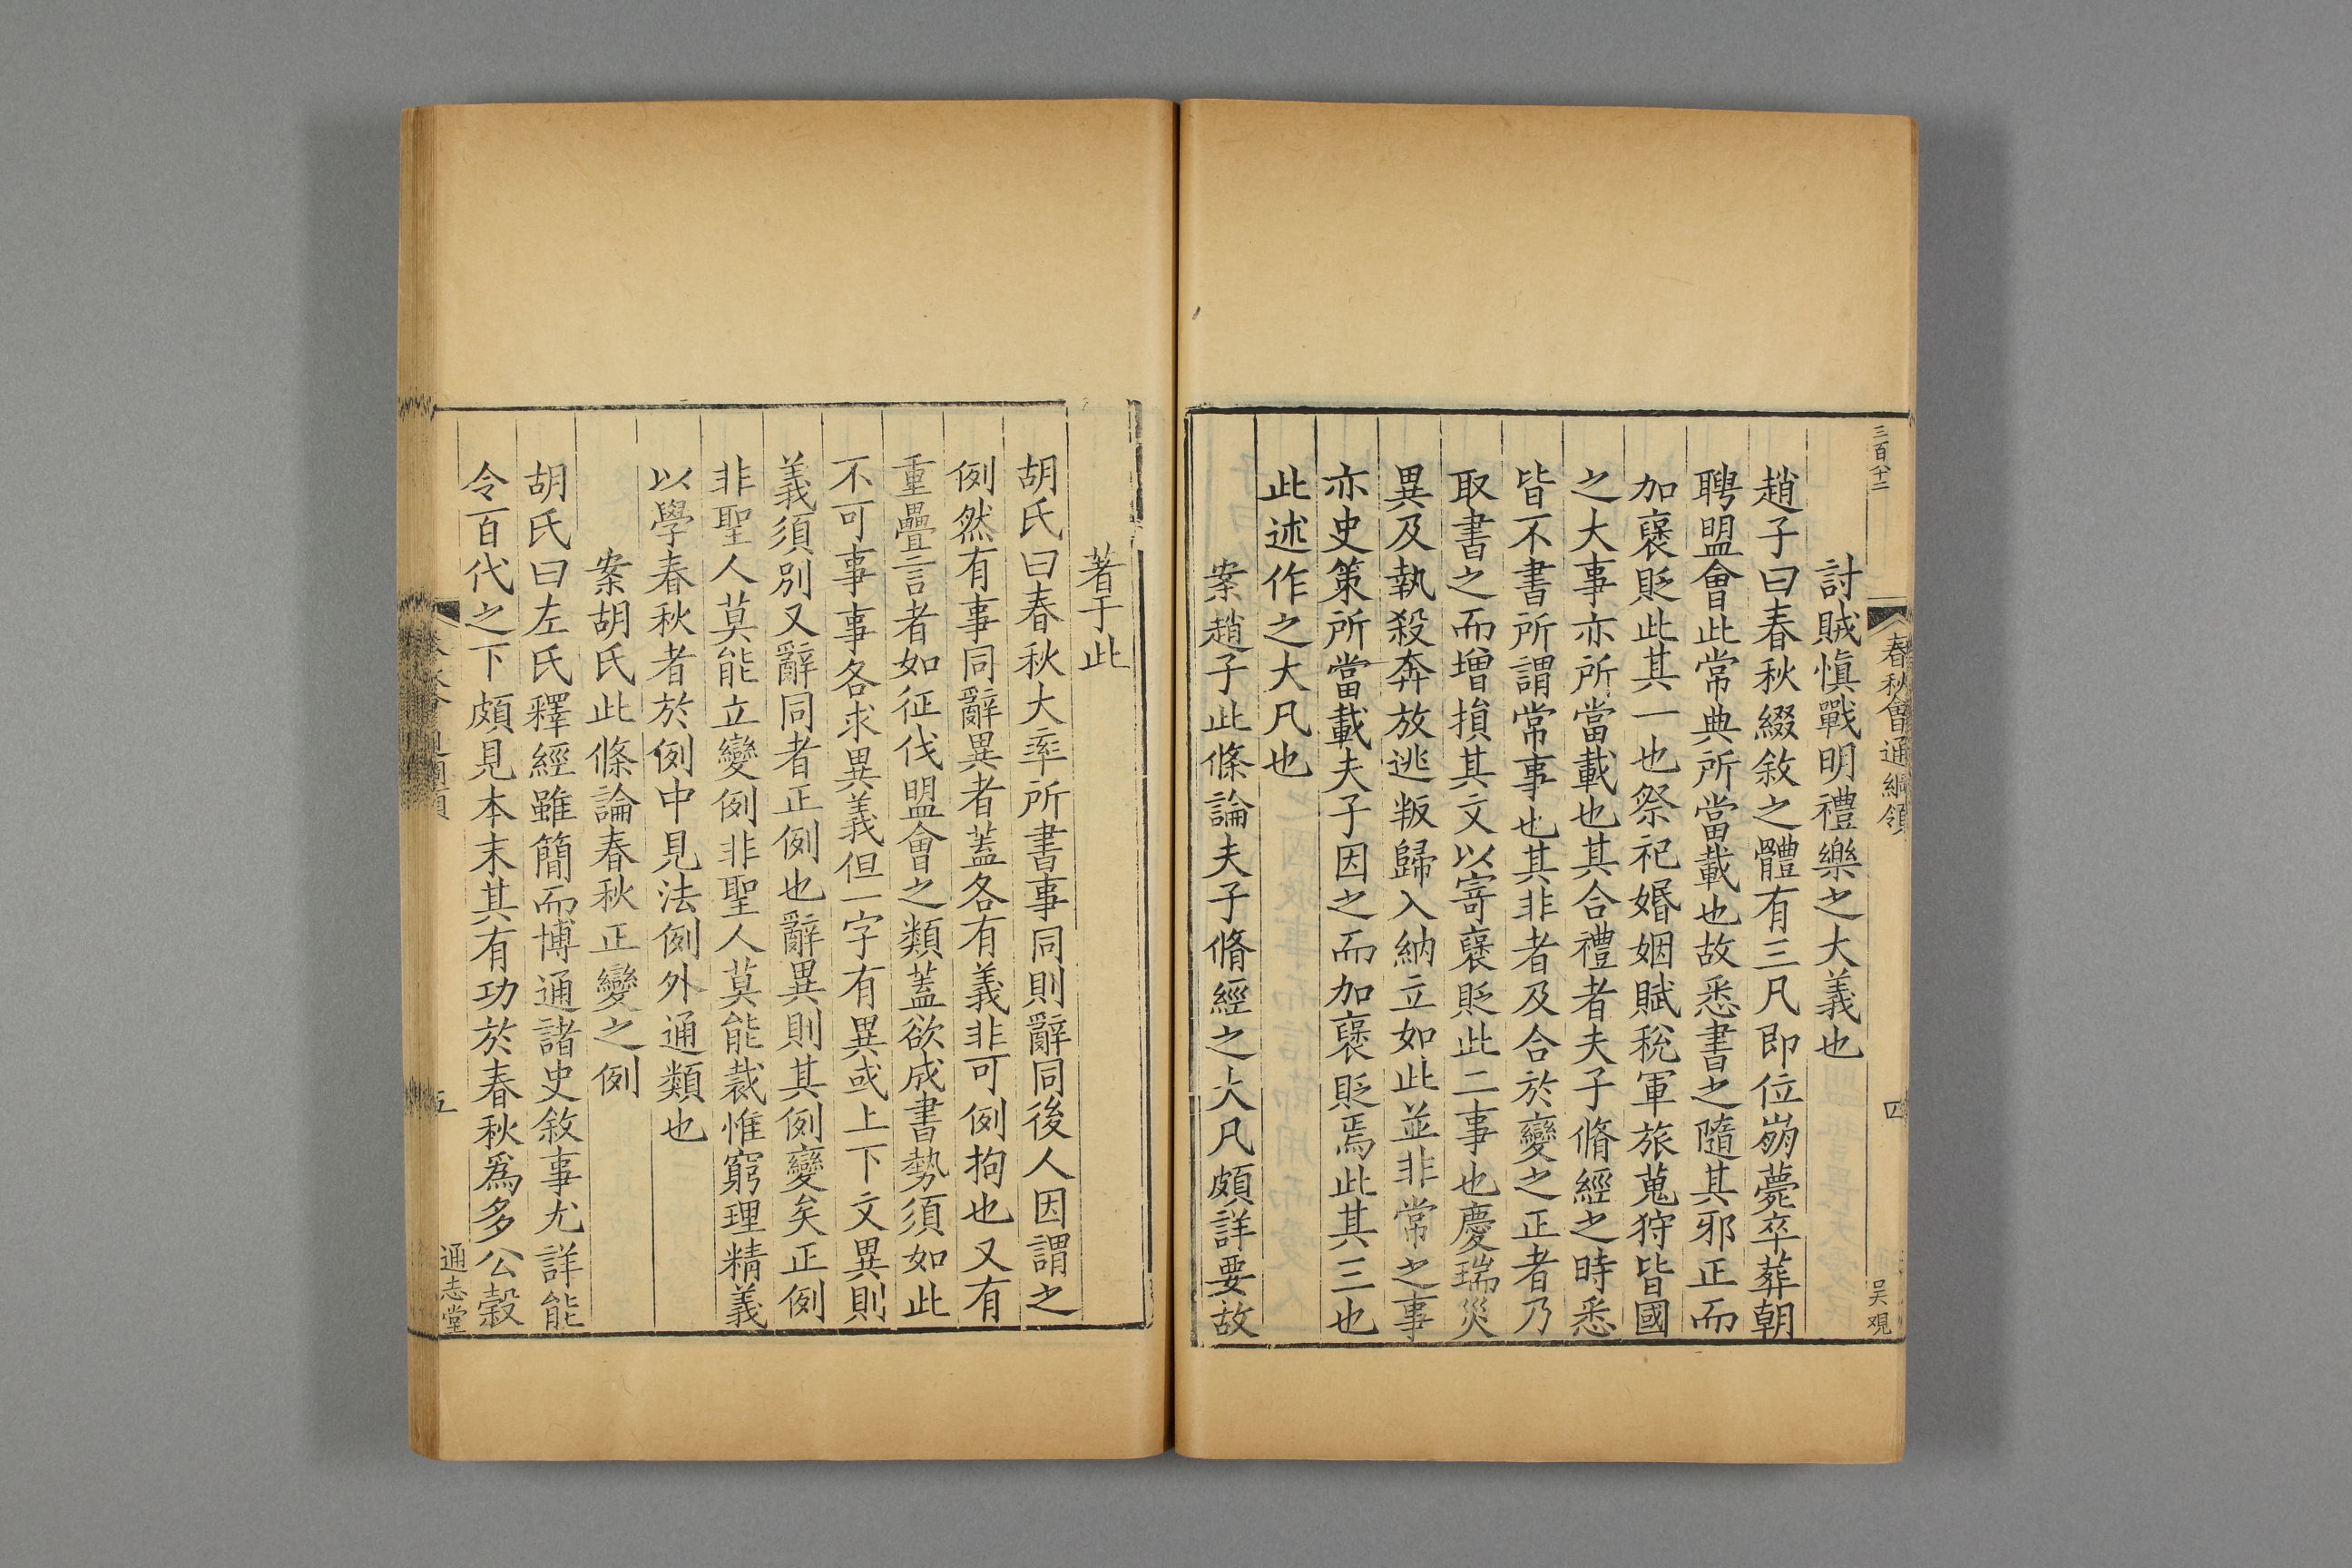 三百八十二
春秋會通綱領
四
吴覌
討賊愼戰明禮樂之大義也
趙子曰春秋綴敘之體有三凡即位崩薨卒葬朝
聘盟會此常典所當載也故悉書之隨其邪正而
加襃貶此其一也祭祀婚姻賦稅軍旅蒐狩皆國
之大事亦所當載也其合禮者夫子脩經之時悉
皆不書所謂常事也其非者及合於變之正者乃
取書之而增損其文以寄襃貶此二事也慶瑞災
異及執殺奔放逃叛歸入納立如此並非常之事
亦史策所當載夫子因之而加襃貶焉此其三也
此述作之大凡也
案趙子此條論夫子脩經之大凡頗詳要故
著于此
胡氏曰春秋大率所書事同則辭同後人因謂之
例然有事同辭異者蓋各有義非可例拘也又有
重疊言者如征伐盟會之類蓋欲成書勢須如此
不可事事各求異義但一字有異或上下文異則
義須別又辭同者正例也辭異則其例變矣正例
非聖人莫能立變例非聖人莫能裁惟窮理精義
以學春秋者於例中見法例外通類也
案胡氏此條論春秋正變之例
胡氏曰左氏釋經雖簡而博通諸史敘事尤詳能
令百代之下頗見本末其有功於春秋爲多公穀
五
通志堂